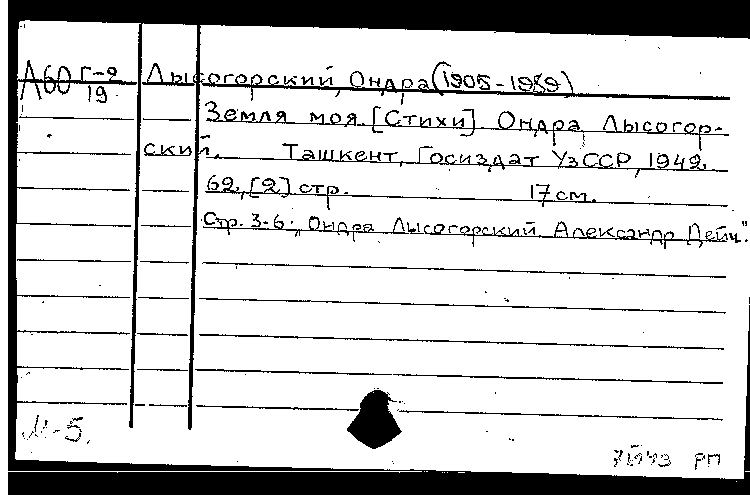 Л60 Г-2 Лысогорский, Ондра (1905-1989)
19
Земля моя. [Стихи]. Ондра Лысогор-
ский. Ташкент, Госиздат УзССР, 1942.
62, [2] стр. 17 см.
Стр. 3-6: "Ондра Лысогорский. Александр Дейч".
М-5.
РП